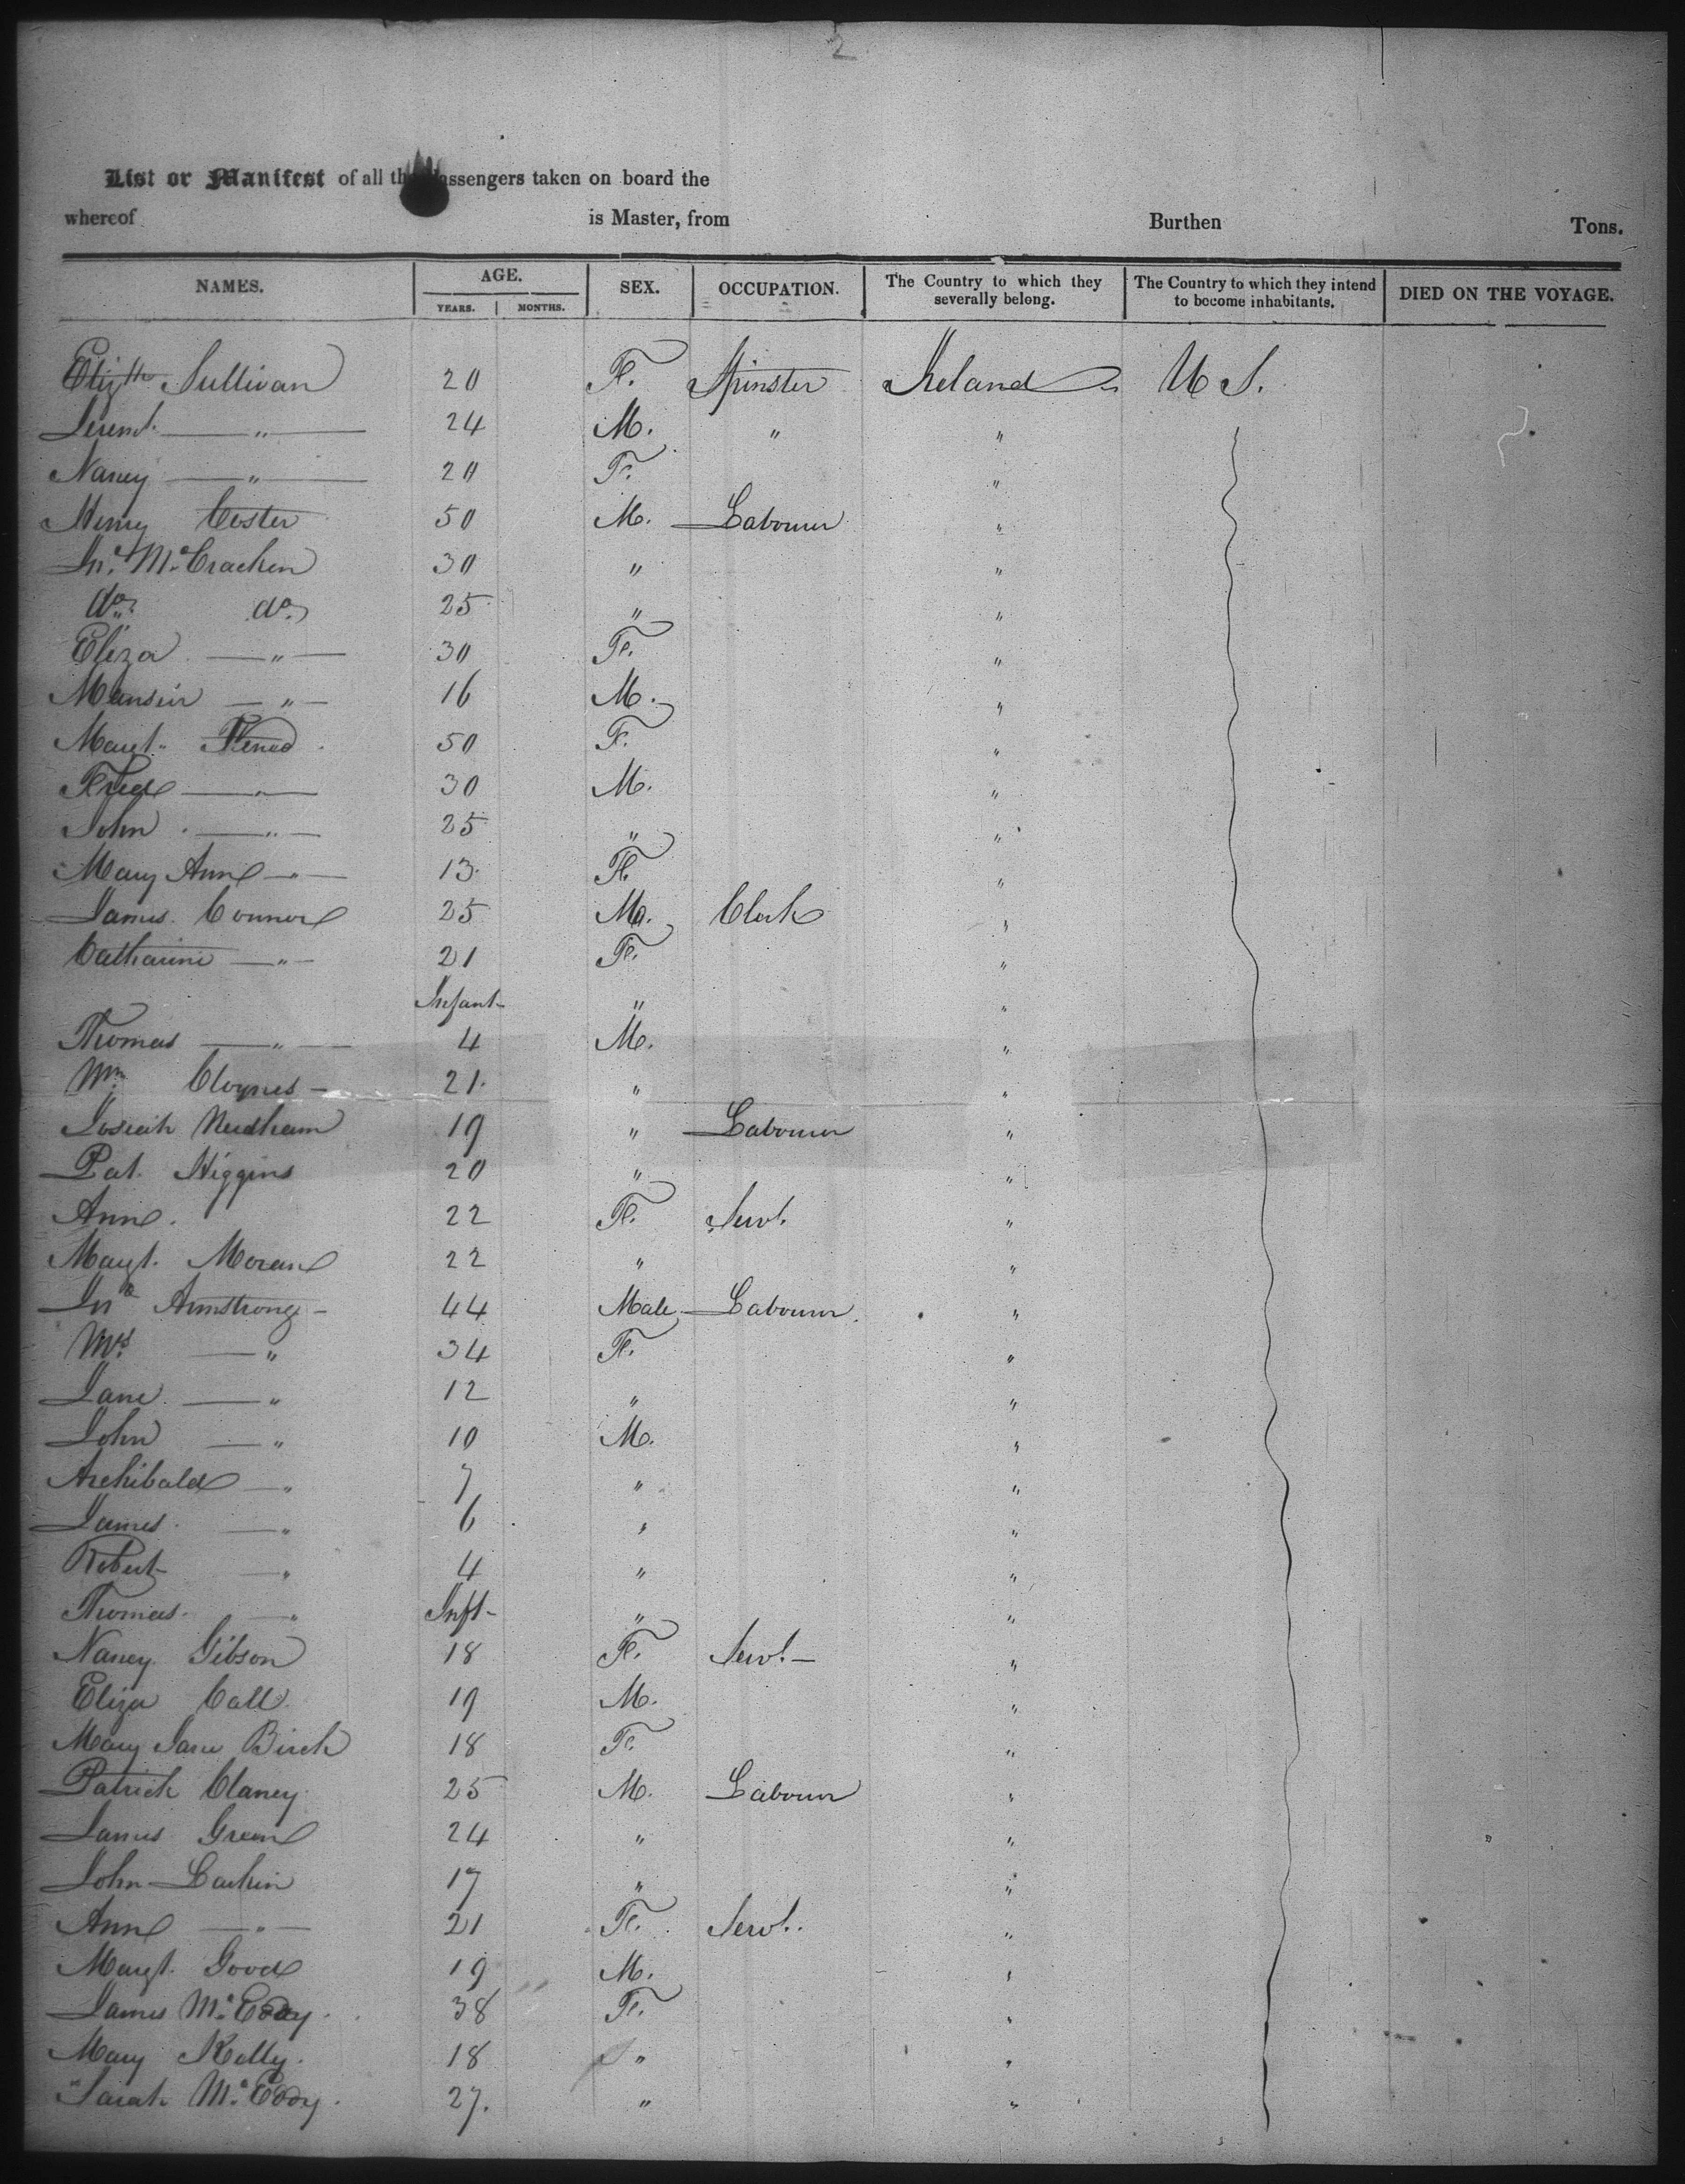 2
List or Manifest of all the Passengers taken on board the
whereof is Master, from Burthen Tons.
NAMES. AGE. SEX. OCCUPATION. The Country to which they severally belong. The Country to which they intend to become inhabitants. DIED ON THE VOYAGE.
YEARS. MONTHS.
Elizth Sullivan 20 F. Spinster Ireland U S.
—"— 24 M. " "
Nancy —"— 20 F. "
Henry Coster 50 M. Labourer "
Jno. McCracken 30 " "
do. do. 25 " "
Eliza —"— 30 F. "
—"— 16 M. "
Margt. 50 F. "
—"— 30 M. "
John —"— 25 " "
Mary Ann —"— 13 F. "
James Connor 25 M. Clerk "
Catharine —"— 21 F. "
Infant " "
Thomas —"— 4 M. "
Wm. Cloynes 21. " "
Josiah Needham 19 " Labourer "
Pat. Higgins 20 " "
Ann. 22 F. Servt. "
Margt. Moran 22 " "
Jno Armstrong 44 Male Labourer "
Mrs. —" 34 F. "
Jane —" 12 " "
John —" 10 M. "
Archibald —" 7 " "
James —" 6 " "
Robert —" 4 " "
Thomas —" Inft " "
Nancy Gibson 18 F. Servt. "
Eliza Call 19 M. "
Mary Jane Birch 18 F. "
Patrick Clancy 25 M. Labourer "
James Green 24 " "
John Larkin 17 " "
Ann —"— 21 F. Servt. "
Margt. Good 19 M. "
James McEvoy 38 F. "
Mary Kelly 18 " "
Sarah McEvoy 27. " "